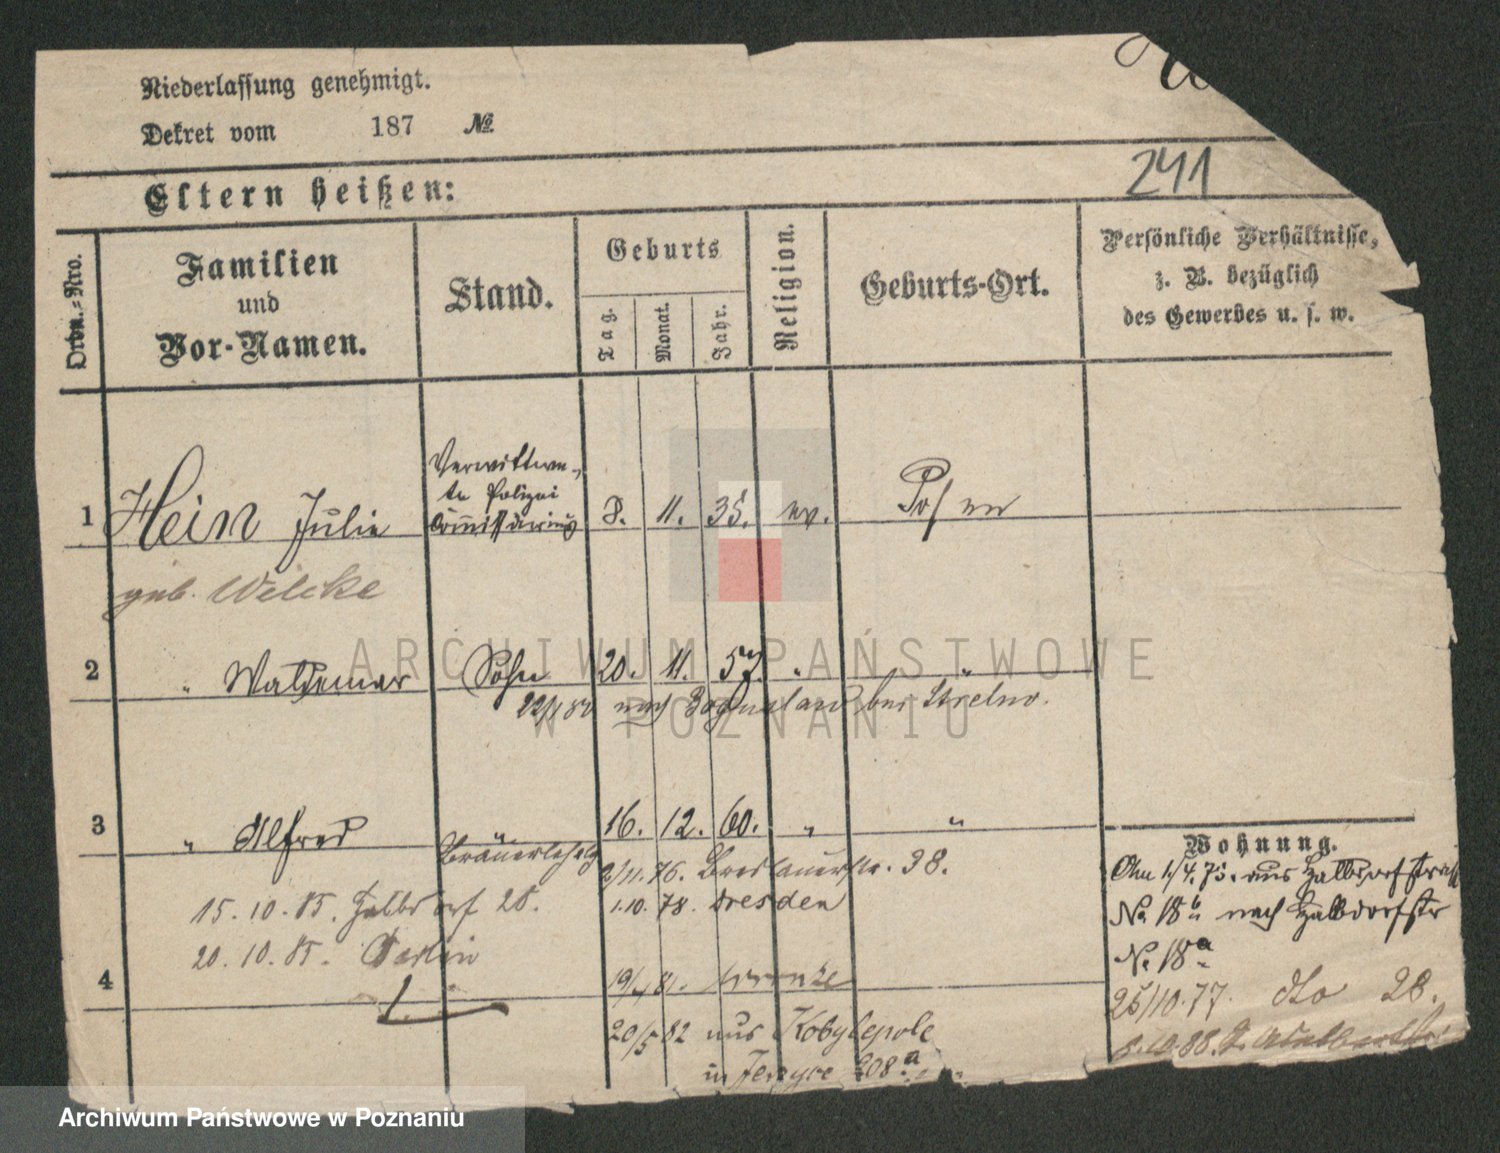 Niederlassung genehmigt.
Dekret vom 187 №
241
Eltern heißen:
Ordn.-Nro.
Familien
und
Vor-Namen.
Stand.
Geburts
Tag.
Monat.
Jahr.
Religion.
Geburts-Ort.
Persönliche Verhältnisse,
z. B. bezüglich
des Gewerbes u. s. w.
Verwittwe-
te Polizei
1 Hein Julie Commissarius 8. 11. 35. ev. Posen
geb. Wilcke
2 " Waldemar Sohn 20. 11. 57. " "
nach Boguslaw bei Strelno.
3 " Alfred 16. 12. 60. " "
Brauerlehrlg
2/11. 76. Breslauerstr. 38.
15. 10. 85. Halbdorf 28. 1.10. 78. Dresden
20. 10. 85. Berlin
4 19/4 81.
20/5 82 aus Kobylepole
in Jersyce 208a
Wohnung.
Am 1/4. 75. aus Halbdorfstraße
No. 18b nach Halbdorfstr
No. 18a
25/10. 77. dto 28.
8.10.88.
ARCHIWUM PAŃSTWOWE
W POZNANIU
Archiwum Państwowe w Poznaniu